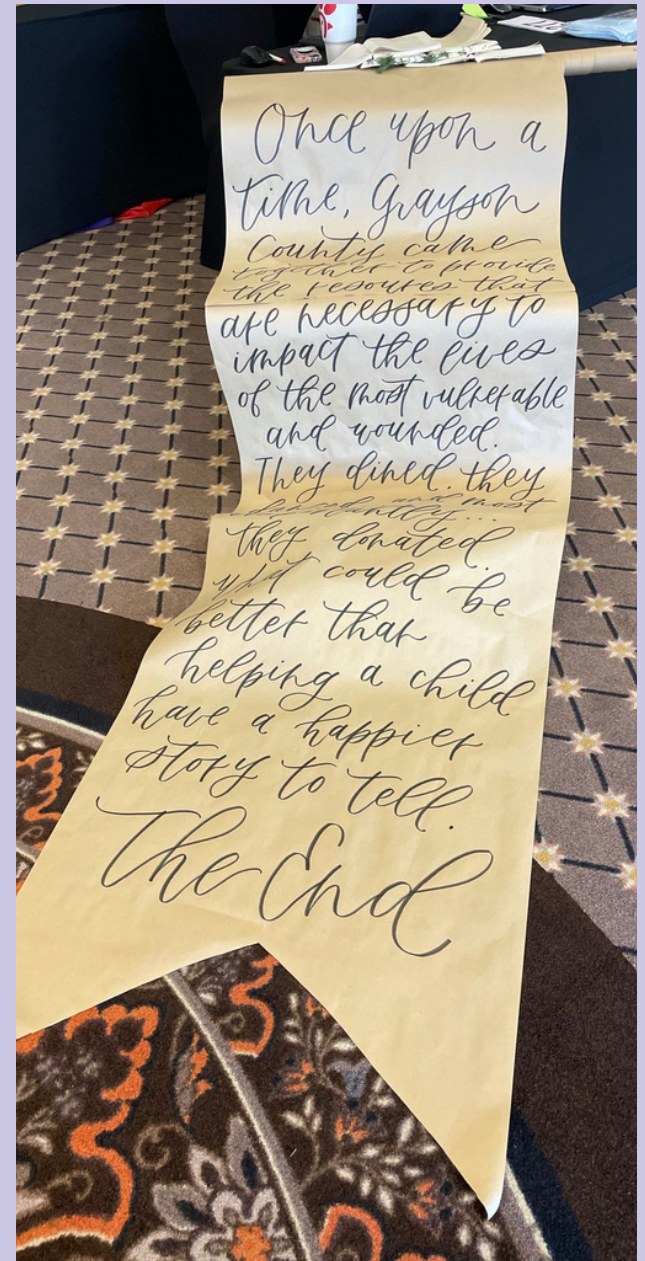 Once upon a
time, Grayson
County came
together to provide
the resoures that
are necessary to
impact the lives
of the most vulnerable
and wounded.
They dined, they
danced and most
they donated.
what could be
better than
helping a child
have a happier
story to tell.
The End